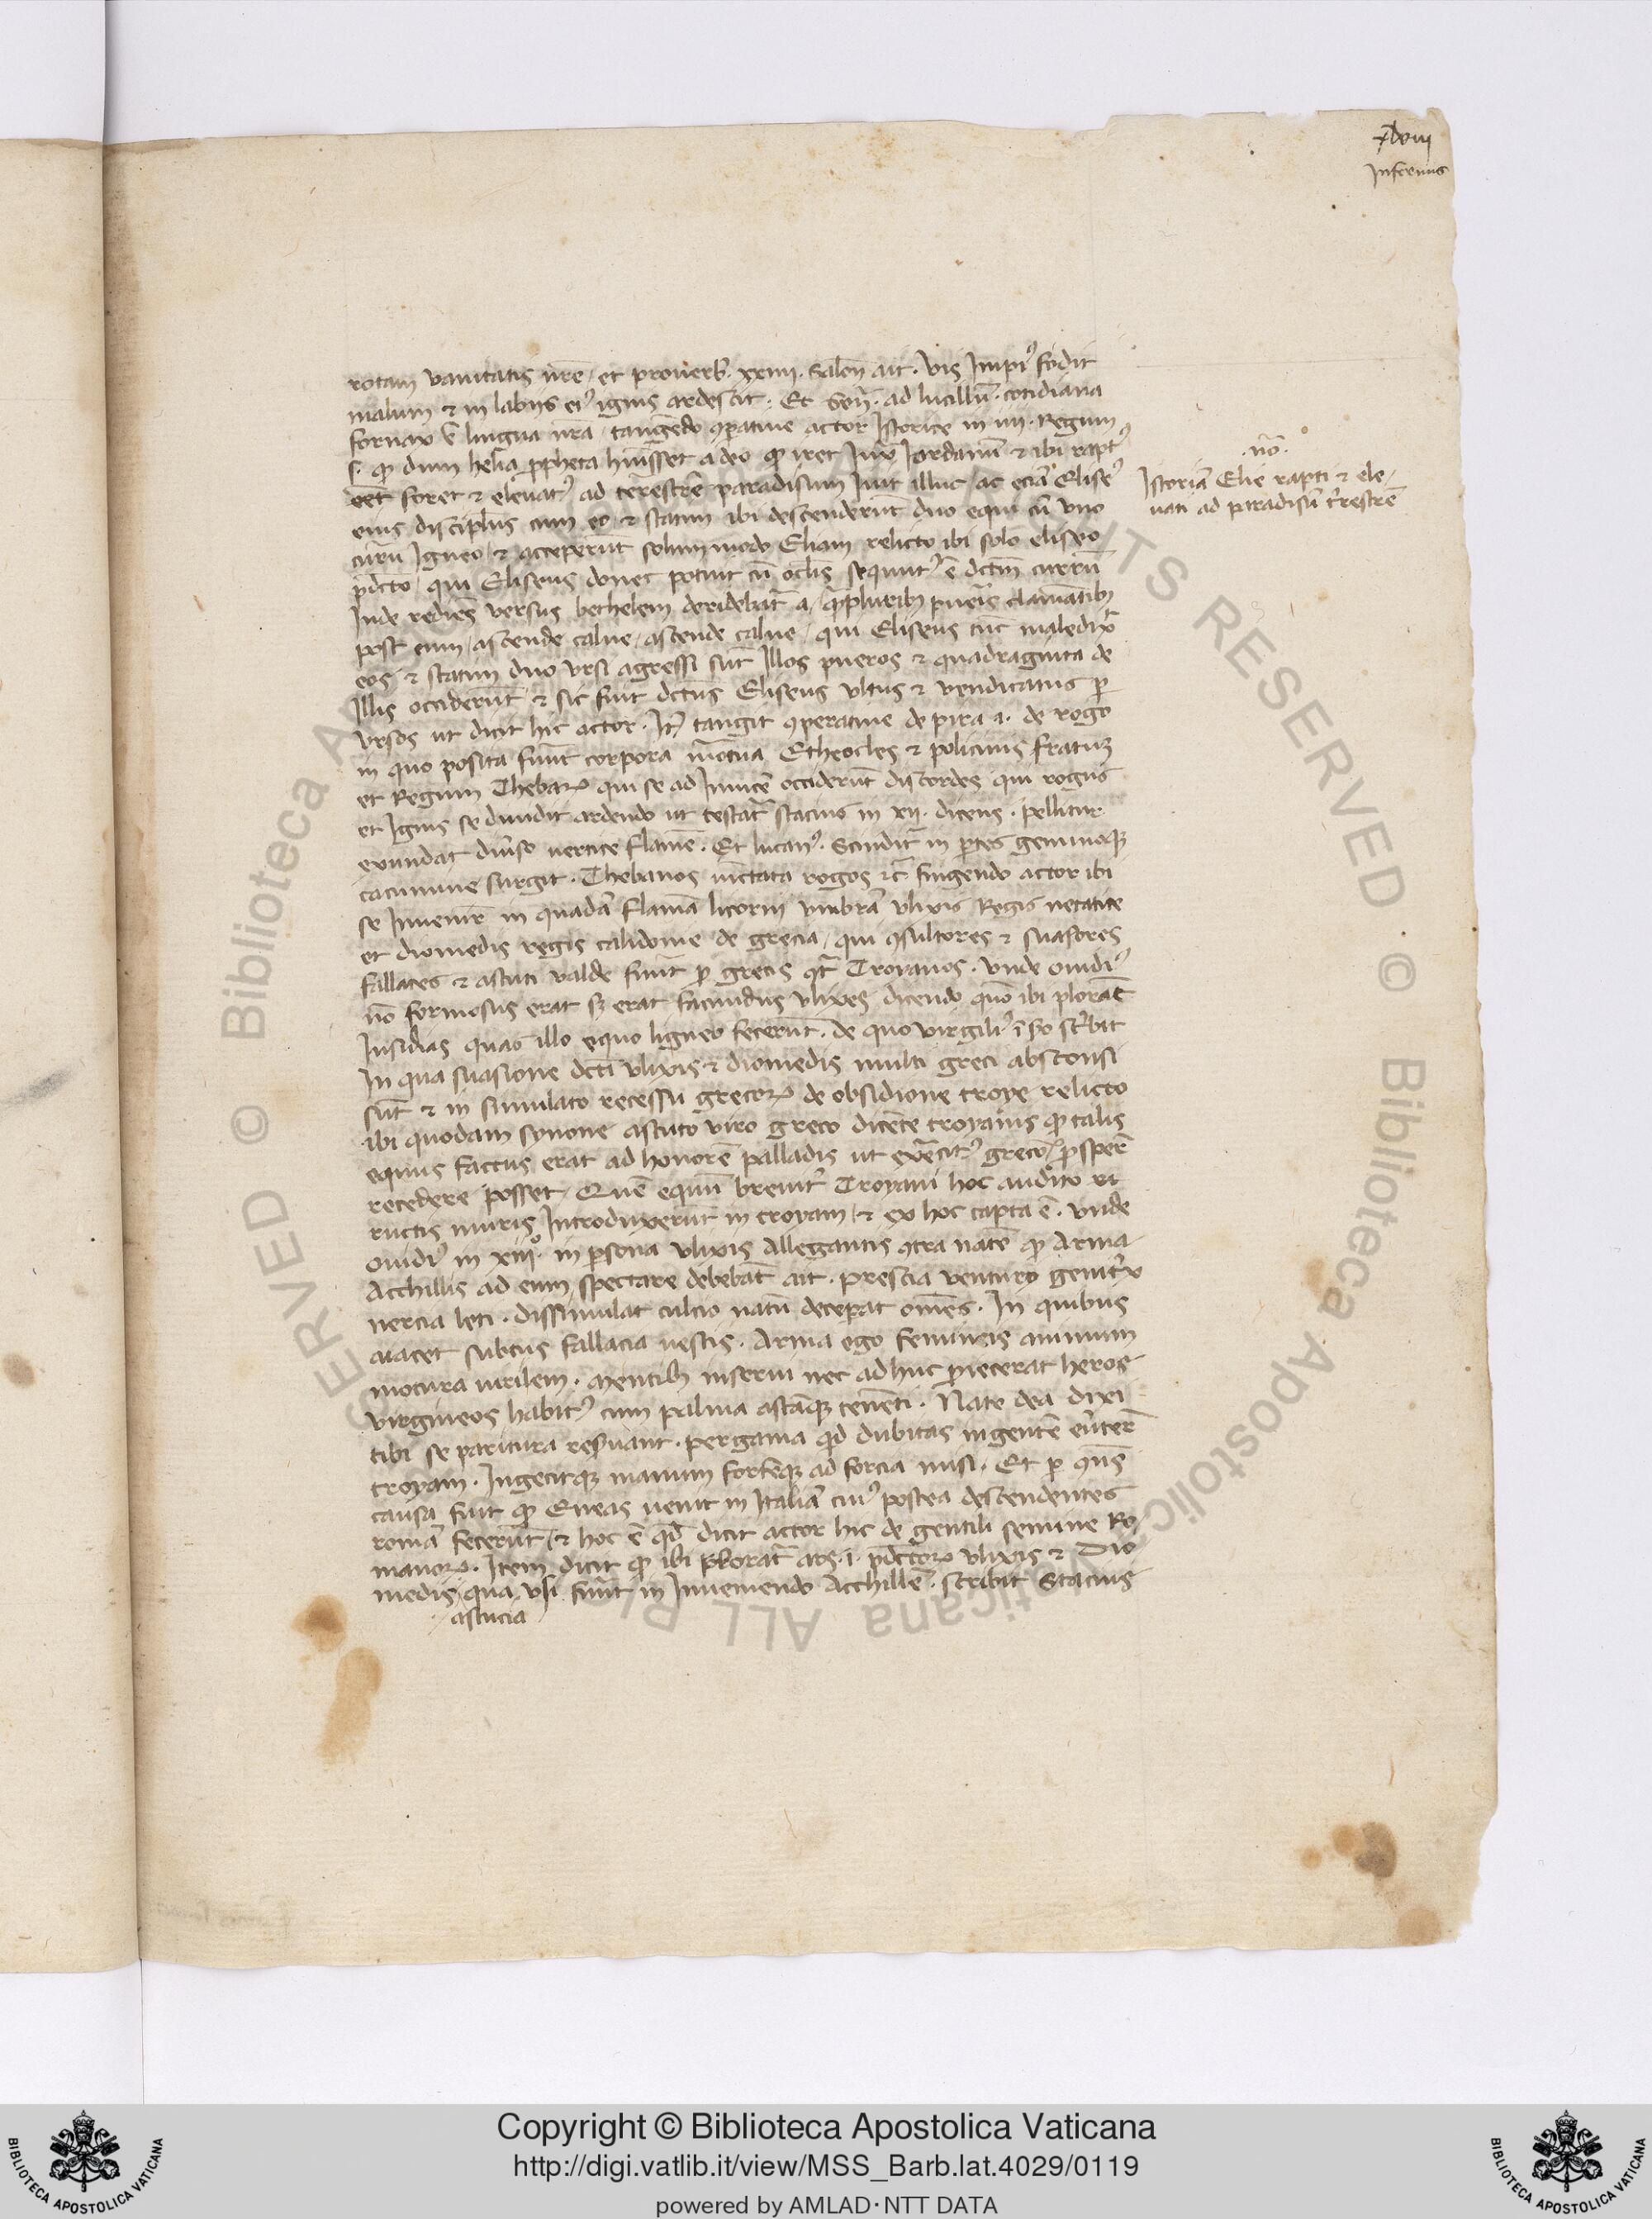 Infernus
rotam vanitatis nr̄e / et prouerb. xxiiij. Salon̄ ait. vis Impiꝰ fodit
malum ⁊ in labijs eiꝰ ignis ardescit. Et Sen̄. ad lucillū. cotidiana
fornax ē lingua nr̄a. tangendo ꝯparatiue actor Istorice in iiij. Regum
s. qɔ dum helia ꝓpheta huisset a deo qɔ iret Iux̄ Iordanū ⁊ ibi raptꝰ
foret ⁊ eleuatꝰ ad terrestrē paradisum Iuit illuc / ac eciā Eliseꝰ
eius discipl̄us cum eo ⁊ statim ibi descenderūt duo equi cū vno
curru Igneo / ⁊ acceperūt solummodo Eliam relicto ibi solo eliseo
p̄dcto / qui Eliseus donec potuit cū ocl̄is sequutꝰ ē dctm̄ currū
Inde rediēs versus bethelem deridebat̄ a / qɔpluribꝫ pueris clamātibꝫ
post eum / ascende calue / ascende calue / qui Eliseus tūc maledix̄
eos ⁊ statim duo vrsi agressi sūt Illos pueros ⁊ quadraginta de
Illis occiderūt / ⁊ sic fuit dctus Eliseus vltus ⁊ vendicatus ꝑ
vrsos ut dicit hic actor. It̄ tangit ꝯperatiue de pira .i. de rogo
in quo posita funt corpora mortua Etheocles ⁊ policinis fratrum
et Regum Thebaꝝ qui se ad Inuicē occiderūt discordes qui rogus
et Ignis se diuidit ardendo ut testat̄ stacius in xij. dicens. pellitur
exundat diuiso uertice flamē. Et lucanꝰ. Scindit̄ in ꝑtes geminoqꝫ
cacumine surgit. Thebanos imitata rogos ⁊c̄ fingendo actor ibi
se Inuenire in quadā flamā licorni vmbrā vlixis Regis
et diomedis regis calidonie de grecia / qui ꝯsultores ⁊ suasores
fallaces ⁊ astuti valde funt ꝓ grecis ꝯt̄ Troyanos. vnde ouidiꝰ
nō formosus erat sꝫ erat facundus vlixes dicendo quō ibi plorat̄
Insidias quas illo equo ligneo fecerūt. de quo virgiliꝰ ī s̄o sc̄bit
In qua suasione dcti vlixis ⁊ diomedis multi greci absconsi
sūt ⁊ in simulato recessu grecoꝝ de obsidione troye relicto
ibi quodam synone astuto viro greco dicente troyanis qɔ talis
equus factus erat ad honorē palladis ut exercitꝰ grecoꝝ ꝓspere
recedere posset / Quē equū breuit̄ Troyani hoc audito et
ructis muris Introduxerūt in troyam / ⁊ ex hoc capta ē. vnde
ouidiꝰ in xiijº. in ꝑsona vlixis Allegantis ꝯtra natē qɔ Arma
Acchillis ad eum spectare debebāt ait. prescia venturo genitrix
nercia leti. dissimulat cultio natū deceperat om̄es. In quibus
aiacet subtus fallacia uestis. Arma ego femineis animum
motura uirilem. Mentibꝫ inserui nec adhuc proiecerat heros
virgineos habitꝰ cum palma astāqꝫ tenēti. Nate dea dixi
tibi se paritura reseruant. pergama qɔd dubitas ingentē euertere
troyam. Ingecitqꝫ manum forteqꝫ ad forcia misi. Et ꝑ ꝯn̄s
causa fuit qɔ Eneas uenit in Italiā cuiꝰ postea descendentes
romā fecerūt / ⁊ hoc ē qɔd dicit actor hic de gentili semine Ro
manoꝝ. Item dicit qɔ ibi plorat̄ ars .i. p̄dctoꝝ vlixis ⁊ Dio
medis / qua vsi funt in Inueniendo Acchillē. scribit Stacius
astucia
nō.
Istoriā Elie rapti ⁊ ele-
uati ad paradisū t̄restrē
Copyright © Biblioteca Apostolica Vaticana
http://digi.vatlib.it/view/MSS_Barb.lat.4029/0119
powered by AMLAD·NTT DATA
BIBLIOTECA APOSTOLICA VATICANA
BIBLIOTECA APOSTOLICA VATICANA